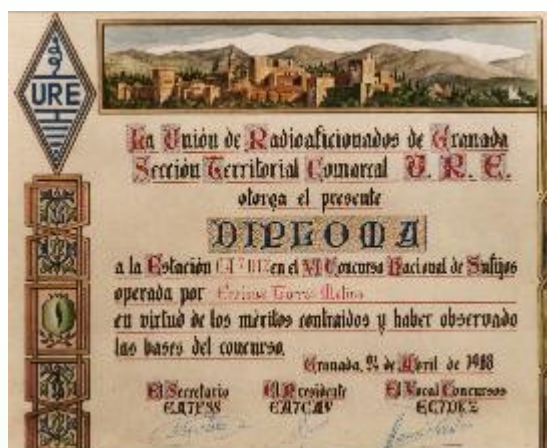 URE
La Unión de Radioaficionados de Granada
Sección Territorial Comarcal U. R. E.
otorga el presente
DIPLOMA
a la Estación en el VI Concurso Nacional de Sufijos
operada por Enrique Torres Molina
en virtud de los méritos contraidos y haber observado
las bases del concurso.
Granada, de Abril de 1988
El Secretario El Presidente El Vocal Concursos
EA7FSS EA7CAV EC7DKZ